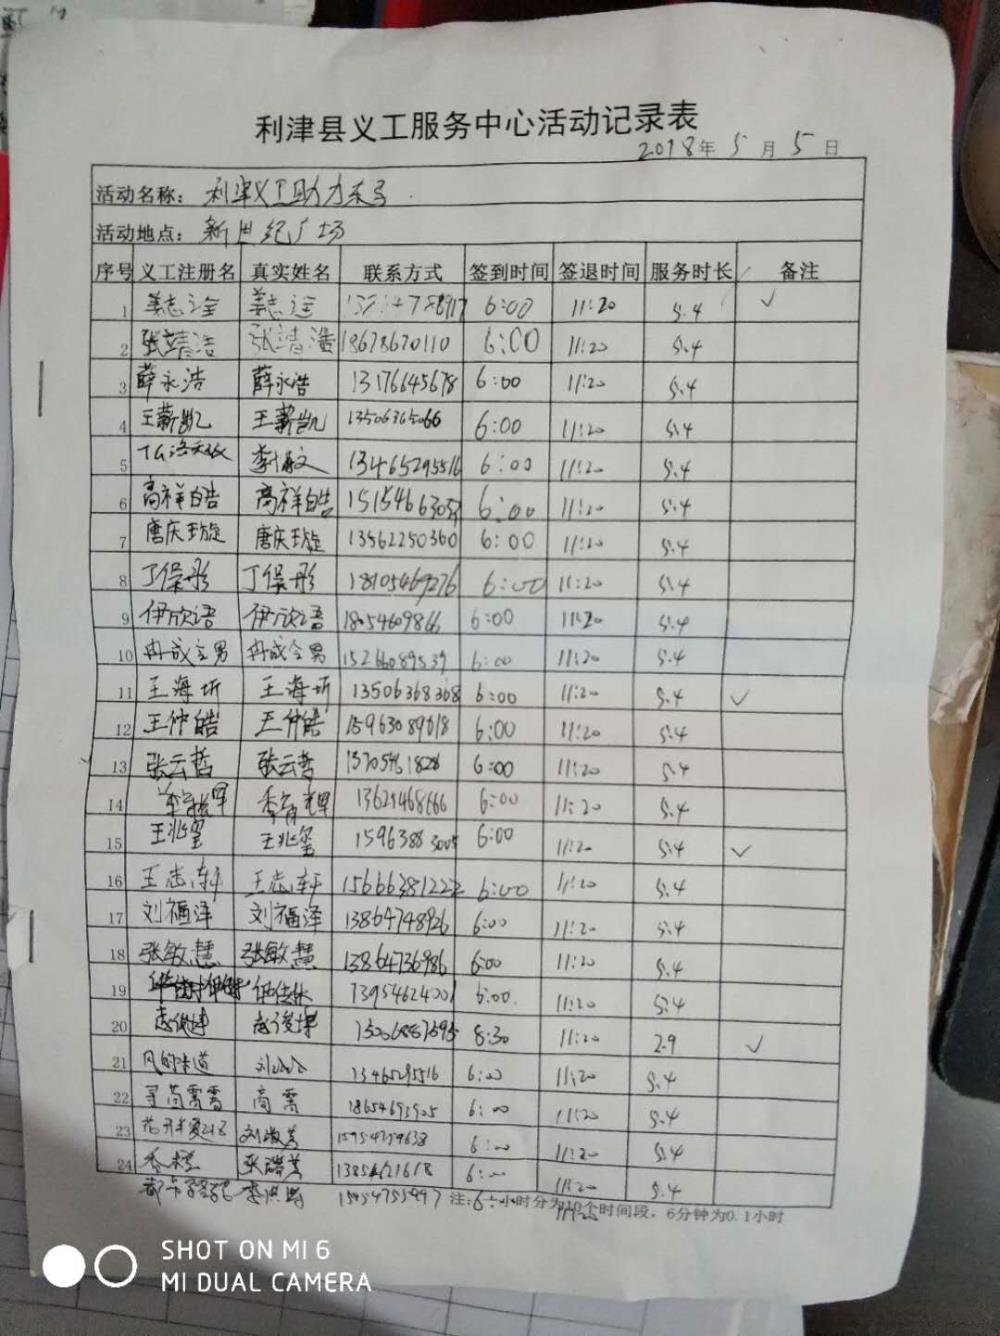 利津县义工服务中心活动记录表
2018年 5月 5日
活动名称: 利津义工助力东马
活动地点: 新世纪广场
序号 义工注册名 真实姓名 联系方式 签到时间 签退时间 服务时长 备注
1 6:00 11:20 5.4 ✓
2 张靖浩 张靖浩 18678670110 6:00 11:20 5.4
3 薛永浩 薛永浩 13176645678 6:00 11:20 5.4
4 王薪凯 王薪凯 13506365066 6:00 11:20 5.4
5 13465295516 6:00 11:20 5.4
6 高祥皓 高祥皓 6:00 11:20 5.4
7 唐庆璇 唐庆璇 13562250360 6:00 11:20 5.4
8 丁保彤 丁保彤 18105469276 6:00 11:20 5.4
9 伊欣语 伊欣语 18054609866 6:00 11:20 5.4
10 15266089539 6:00 11:20 5.4
11 王海圻 王海圻 13506368368 6:00 11:20 5.4 ✓
12 王仲皓 王仲皓 15963089618 6:00 11:20 5.4
13 张云哲 张云哲 13705461828 6:00 11:20 5.4
14 13625468666 6:00 11:20 5.4
15 王兆玺 王兆玺 15963883005 6:00 11:20 5.4 ✓
16 王志轩 王志轩 15666381222 6:00 11:20 5.4
17 刘福泽 刘福泽 13864748926 6:00 11:20 5.4
18 张敏慧 张敏慧 13864736986 6:00 11:20 5.4
19 13954624001 6:00 11:20 5.4
20 8:30 11:20 2.9 ✓
21 风的味道 13465295516 6:00 11:20 5.4
22 高需 18654693905 6:00 11:20 5.4
23 刘淑芳 15954779638 6:00 11:20 5.4
24 6:00 11:20 5.4
15954755997 注: 小时分为10个时间段,6分钟为0.1小时
SHOT ON MI 6
MI DUAL CAMERA